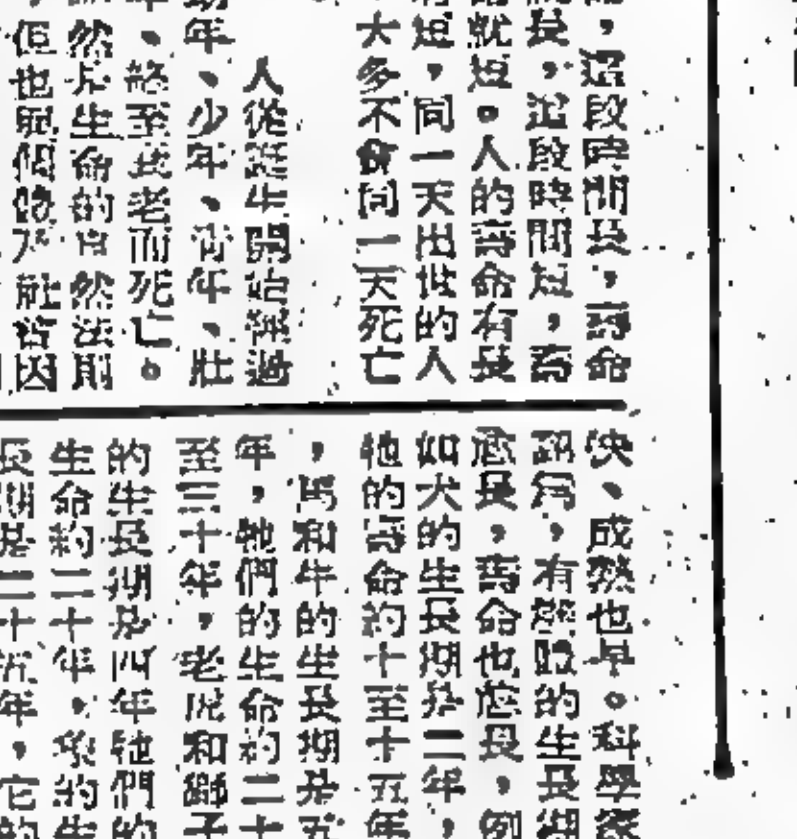 ，這段時間長，壽命
長，這段時間短，壽
就短。人的壽命有長
短，同一天出世的人
大多不會同一天死亡
人從誕生開始經過
年、少年、青年、壯
、終至衰老而死亡。
然是生命的自然法則
但也
因
快、成熟也早。科學家
，有
的生長期
愈長，壽命也愈長，例
如犬的生長期是二年，
牠的壽命約十至十五年
，馬和牛的生長期是五
年，牠們的生命約二十
至三十年，老虎和獅子
的生長期是四年牠們的
生命約二十年，象的生
長期是二十五年，它的